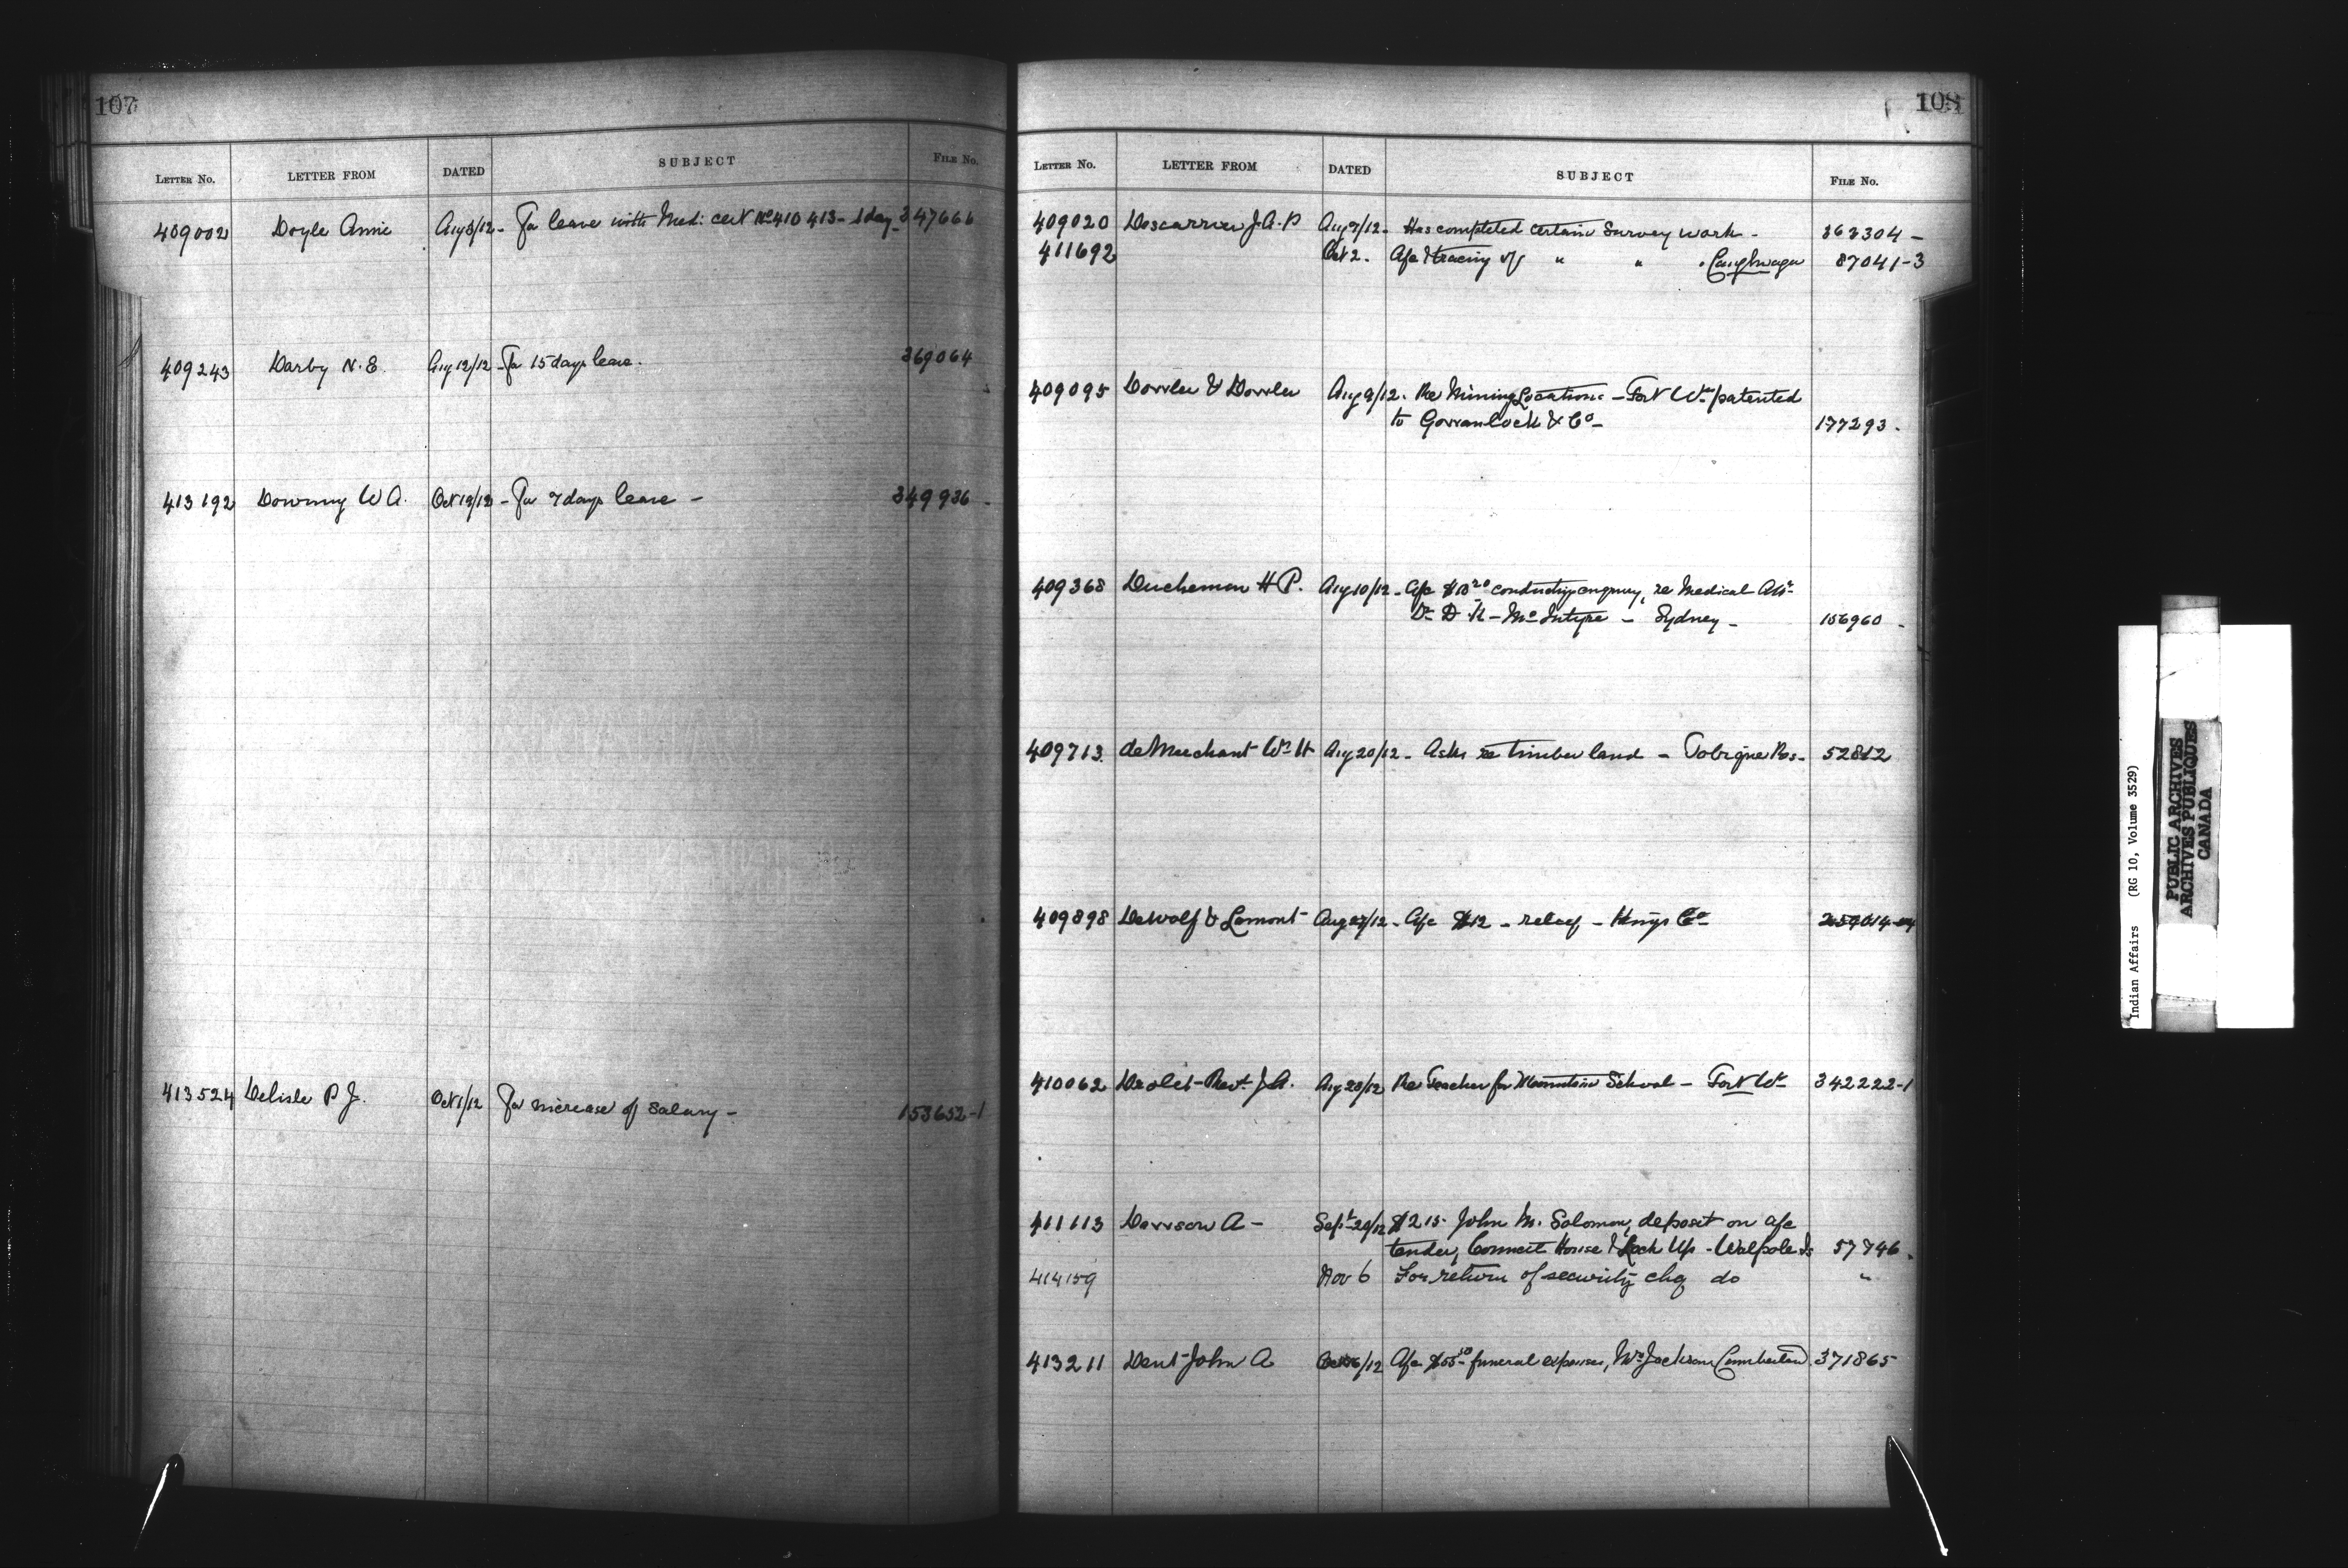 107
LETTER No. LETTER FROM DATED SUBJECT FILE No.
409002 Doyle Annie Aug 8/12 - For leave with Med: cert No 410413 - 1 day - 347666
409243 Darby N. E. Aug 12/12 - For 15 days leave. 369064
413192 Downing W A. Oct 19/12 - For 7 days leave - 349936 -
413524 Delisle P J. Oct 1/12 For increase of salary - 153652-1
108
LETTER No. LETTER FROM DATED SUBJECT FILE No.
409020 Descarries J. A. P Aug 7/12 - Has completed certain Survey work - 363304 -
411692 Oct 2. Afc & tracing of " " . Caughnawaga 87041-3
409095 Dowler & Dowler Aug 9/12. Re Mining Locations - Fort Wm patented
to Gorranlock & Co - 177293 -
409368 Ducheman H P. Aug 10/12 - Afc conducting enquiry, re Medical Att
Dr D K - McIntyre - Sydney - 156960 -
409713 deMerchant Wm H Aug 20/12 - Asks re timber land - Tobique Res - 52812
409898 DeWolf & Lamont Aug 27/12 - Afc $12 - relief - Kings Co
410062 Drolet Revt. J. A. Aug 28/12 Re Teacher for Mountain School - Fort Wm 342222-1
411113 Dawson A - Sept 20/12 $215 John M. Solomon, deposit on afc
tender, Council House & Lock Up - Walpole Is 57746.
414159 Nov 6 For return of security chq do "
413211 Dent John A /12 Afc funeral expenses, Jackson Cumberland 371865
Indian Affairs (RG 10, Volume 3529)
PUBLIC ARCHIVES
ARCHIVES PUBLIQUES
CANADA